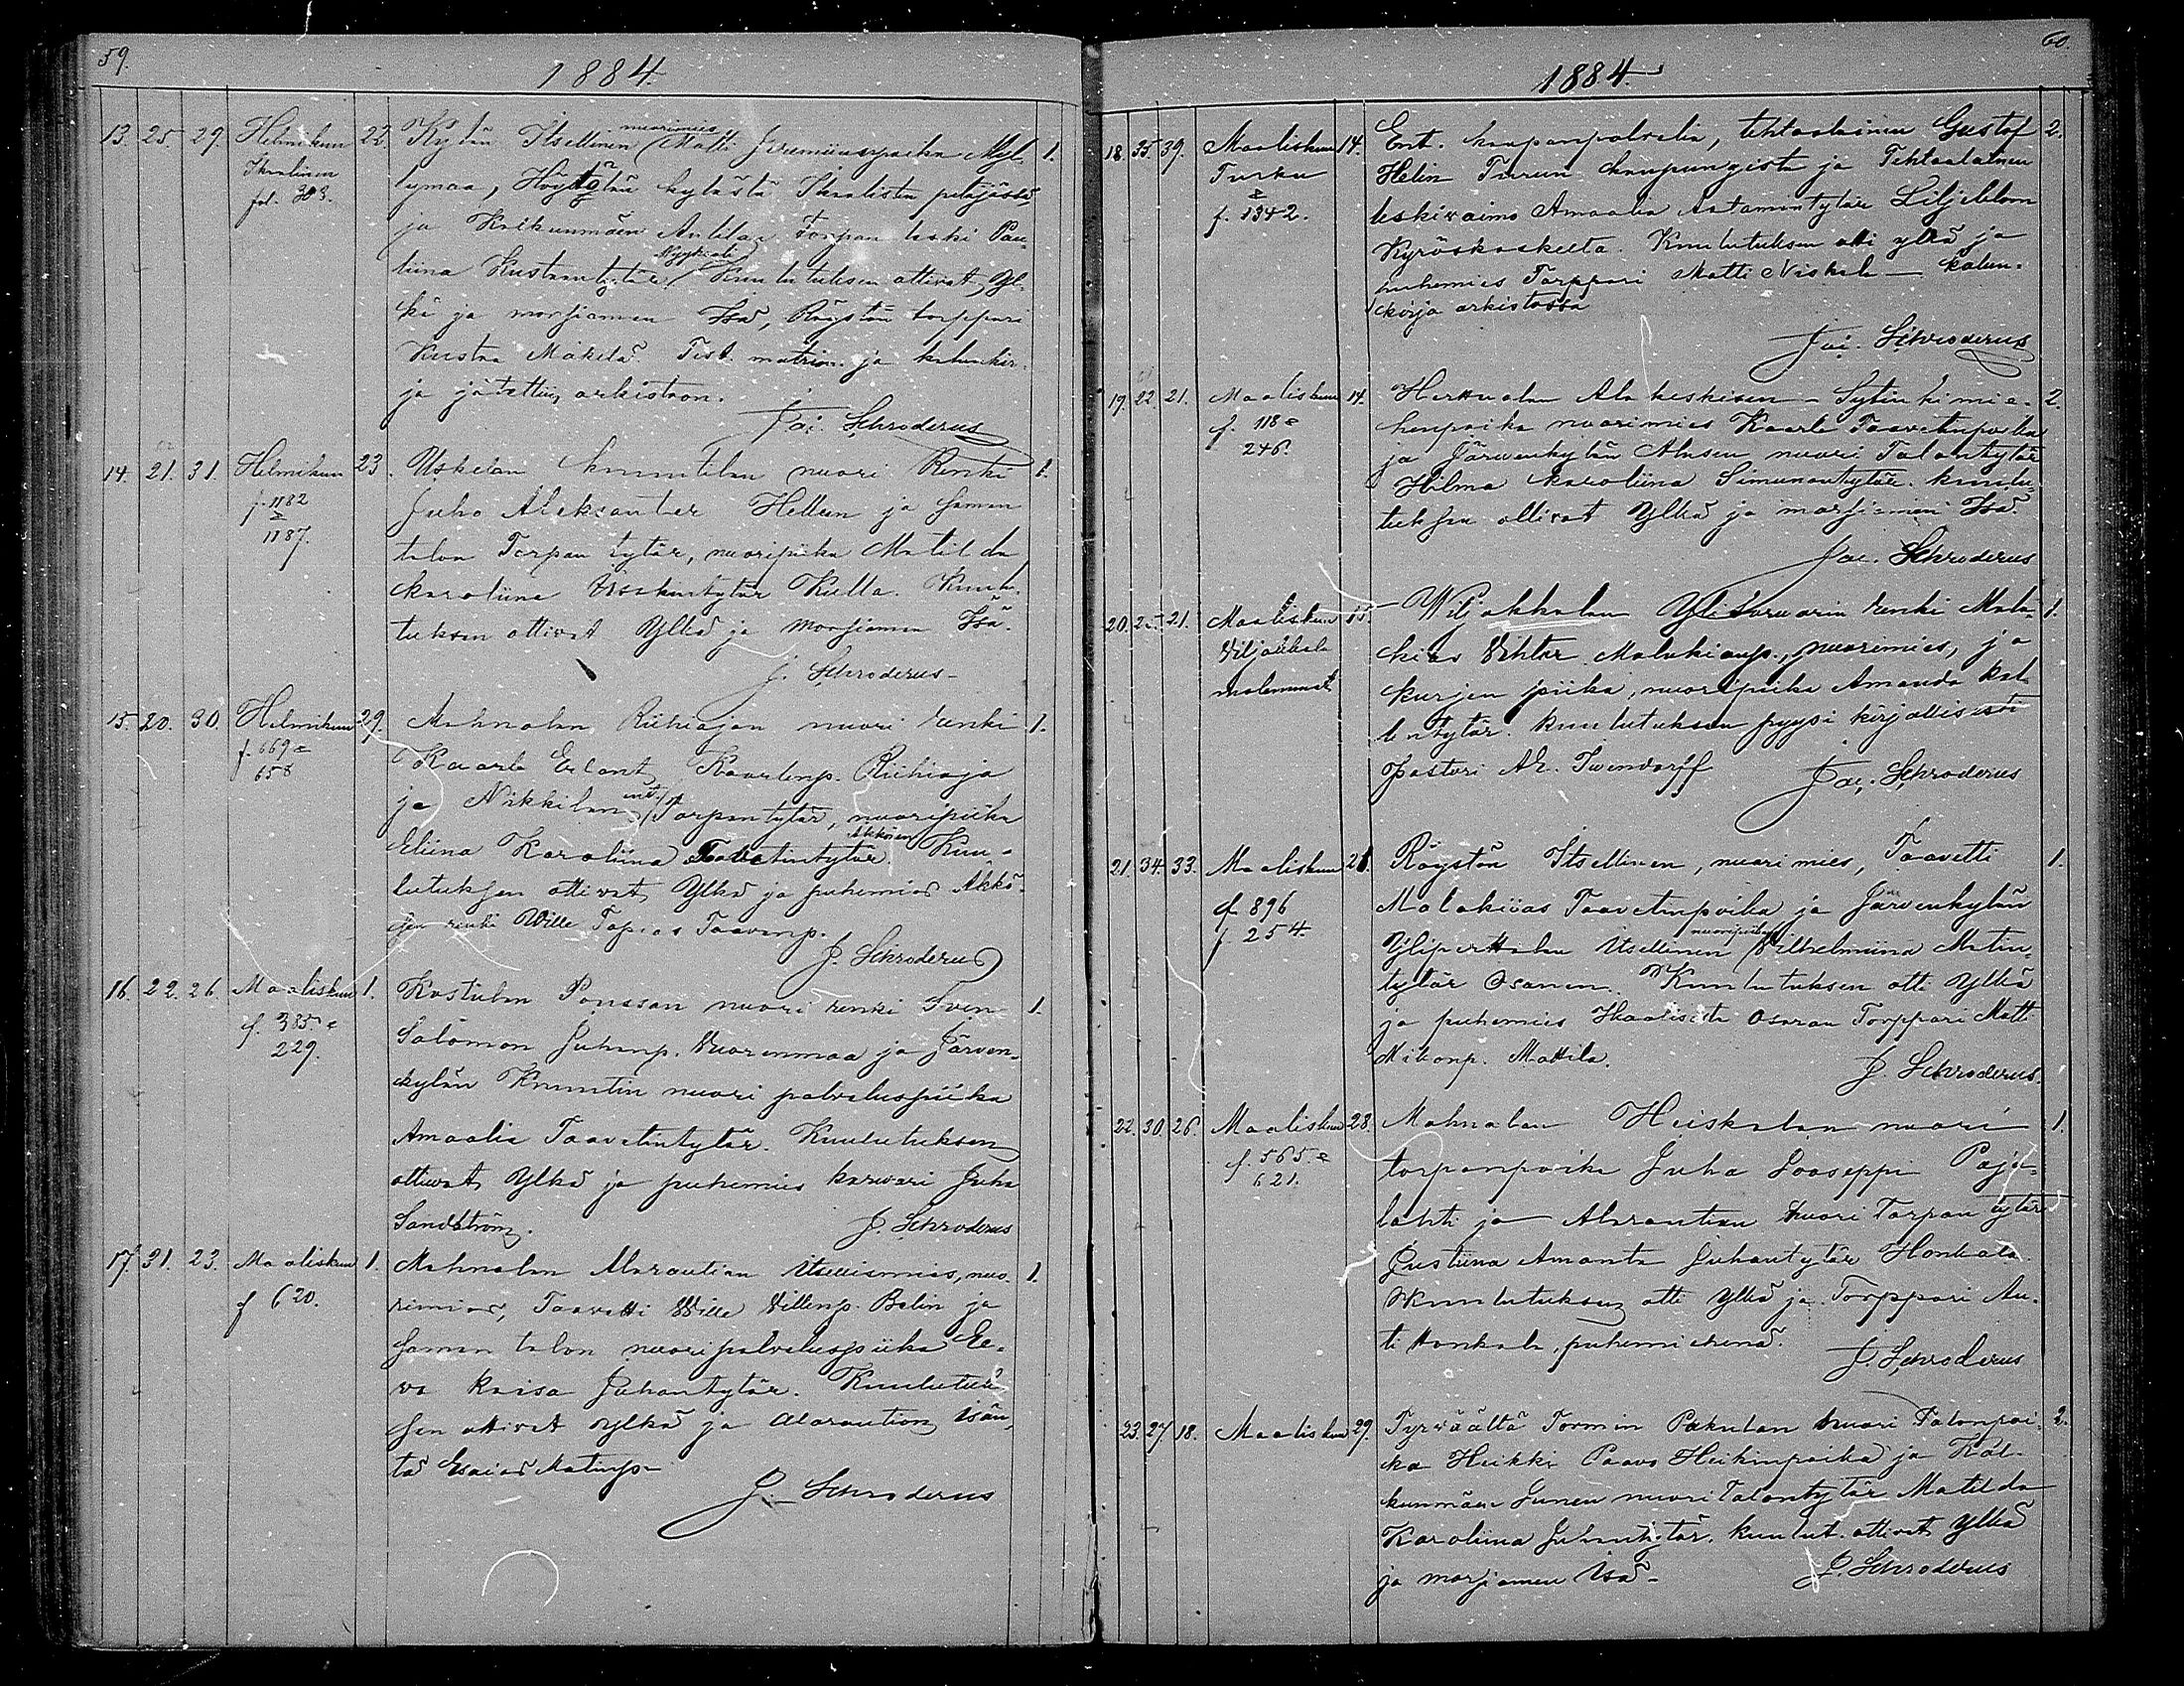 59.
1884.
13. 25. 29. Helmikuun 22. Kylän Itsellinen nuorimies Matti Jeremiaanpoika Myl- 1.
Ikaalinen lymaa, kylästä Ikaalisten pitäjässä
fol. 303. ja Kalkunmäen Anttilan Torpan leski Pau-
liina Kustaantytär Kuulutuksen ottivat yl-
kä ja morsiamen Isä, Röystön torppari
Kustaa Mäkelä. Test. matrim. ja kalunkir-
ja jätettiin arkistoon.
Jac. Schroderus
14. 21. 31. Helmikuun 23. Uskelan Knuutilan nuori Renki 1.
f. 1182 Juho Aleksanter Hellen ja saman
&
1187. talon Torpan tytär, nuoripiika Matilda
Karoliina Iisakintytär Kulla. Kuulu-
tuksen ottivat Ylkä ja Morsiamen Isä.
J. Schroderus
15. 20. 30. Helmikuun 29. Mahnalan Riihiojan nuori renki 1.
f. 669 &
658 Kaarle Erlant Kaarlenp. Riihioja
ja Nikkilän ent. Torpantytär, nuoripiika
Eliina Karoliina Taavetintytär Akkonen. Kuu-
lutuksen ottivat Ylkä ja puhemies Akko-
sen renki Wille Topias Taavinp.
J. Schroderus
16. 22. 26. Maaliskuun 1. Kostulan Ponsan nuori renki Sven 1.
f. 385 &
229. Salomon Juhanp. Vuorenmaa ja Järven-
kylän Knuutin nuori palveluspiika
Amaalia Taavetintytär. Kuulutuksen
ottivat Ylkä ja puhemies karvari Juha
Sandström. J. Schroderus
17. 31. 23. Maaliskuun 1. Mahnalan Alaraution Itsellismies, nuo- 1.
f 620. rimies, Taavetti Wille Villenp. Belin ja
saman talon nuori palveluspiika Ee-
va Kaisa Juhantytär. Kuulutuk-
sen ottivat ylkä ja Alaraution isän-
tä Esaias Matinp.
J. Schroderus
60.
1884.
18. 35. 39. Maaliskuun 14. Ent. kaupanpalvelia, tehtaalainen Gustaf 2.
Turku Helin Turun kaupungista ja Tehtaalainen
&
f. 1342. leskivaimo Amaalia Antamintytär Liljeblom
Kyröskoskelta. Kuulutuksen otti ylkä ja
puhemies Torppari Matti Niskala — kalun-
kirja arkistossa
Jac. Schroderus
19. 22. 21. Maaliskuun 14. Herttualan Alakeskisen - Sytinkimie- 2.
f. 118 &
246. henpoika nuorimies Kaarle Taavetinpoika
ja Järvenkylän Alasen nuori Talontytär
Hilma Karoliina Simunantytär. kuulu-
tuksen ottivat Ylkä ja morsiamen Isä.
Jac. Schroderus
20. 21. Maaliskuun 15. Wiljakkalan renki Mala- 1.
Viljakkala kias Vihtor Malakianp., nuorimies, ja
molemmat Kurjen piika, nuoripiika Amanda Kal-
lentytär. kuulutuksen pyysi kirjallisesti
Pastori
Jac. Schroderus
21. 34. 33. Maaliskuun 21. Röystön Itsellinen, nuorimies, Taavetti 1.
f. 896 Malakias Taavetinpoika ja Järvenkylän
f. 254. Yliperttulan Itsellinen nuoripiika Vilhelmiina Matin-
tytär Osanen. Kuulutuksen otti Ylkä
ja puhemies Haaliston Osaran Torppari Matti
Mikonp. Mattila.
J. Schroderus.
22. 30. 26. Maaliskuun 28. Mahnalan Heiskalan nuori 1.
f. 565 &
621. torpanpoika Juha Jooseppi Paja-
lahti ja Alaraution nuori Torpan tytär
Justiina Amanta Juhantytär Honkala.
Kuulutuksen otti Ylkä ja Torppari An-
ti Honkala, puhemiehenä.
J. Schroderus
23. 27. 18. Maaliskuun 29. Tyrväältä Tormin Pakulan nuori Talonpoi- 2.
ka Heikki Paavo Heikinpoika ja Kal-
kunmäen Junen nuori Talontytär Matilda
Karoliina Juhantytär. kuulut. ottivat Ylkä
ja morsiamen Isä.
J. Schroderus